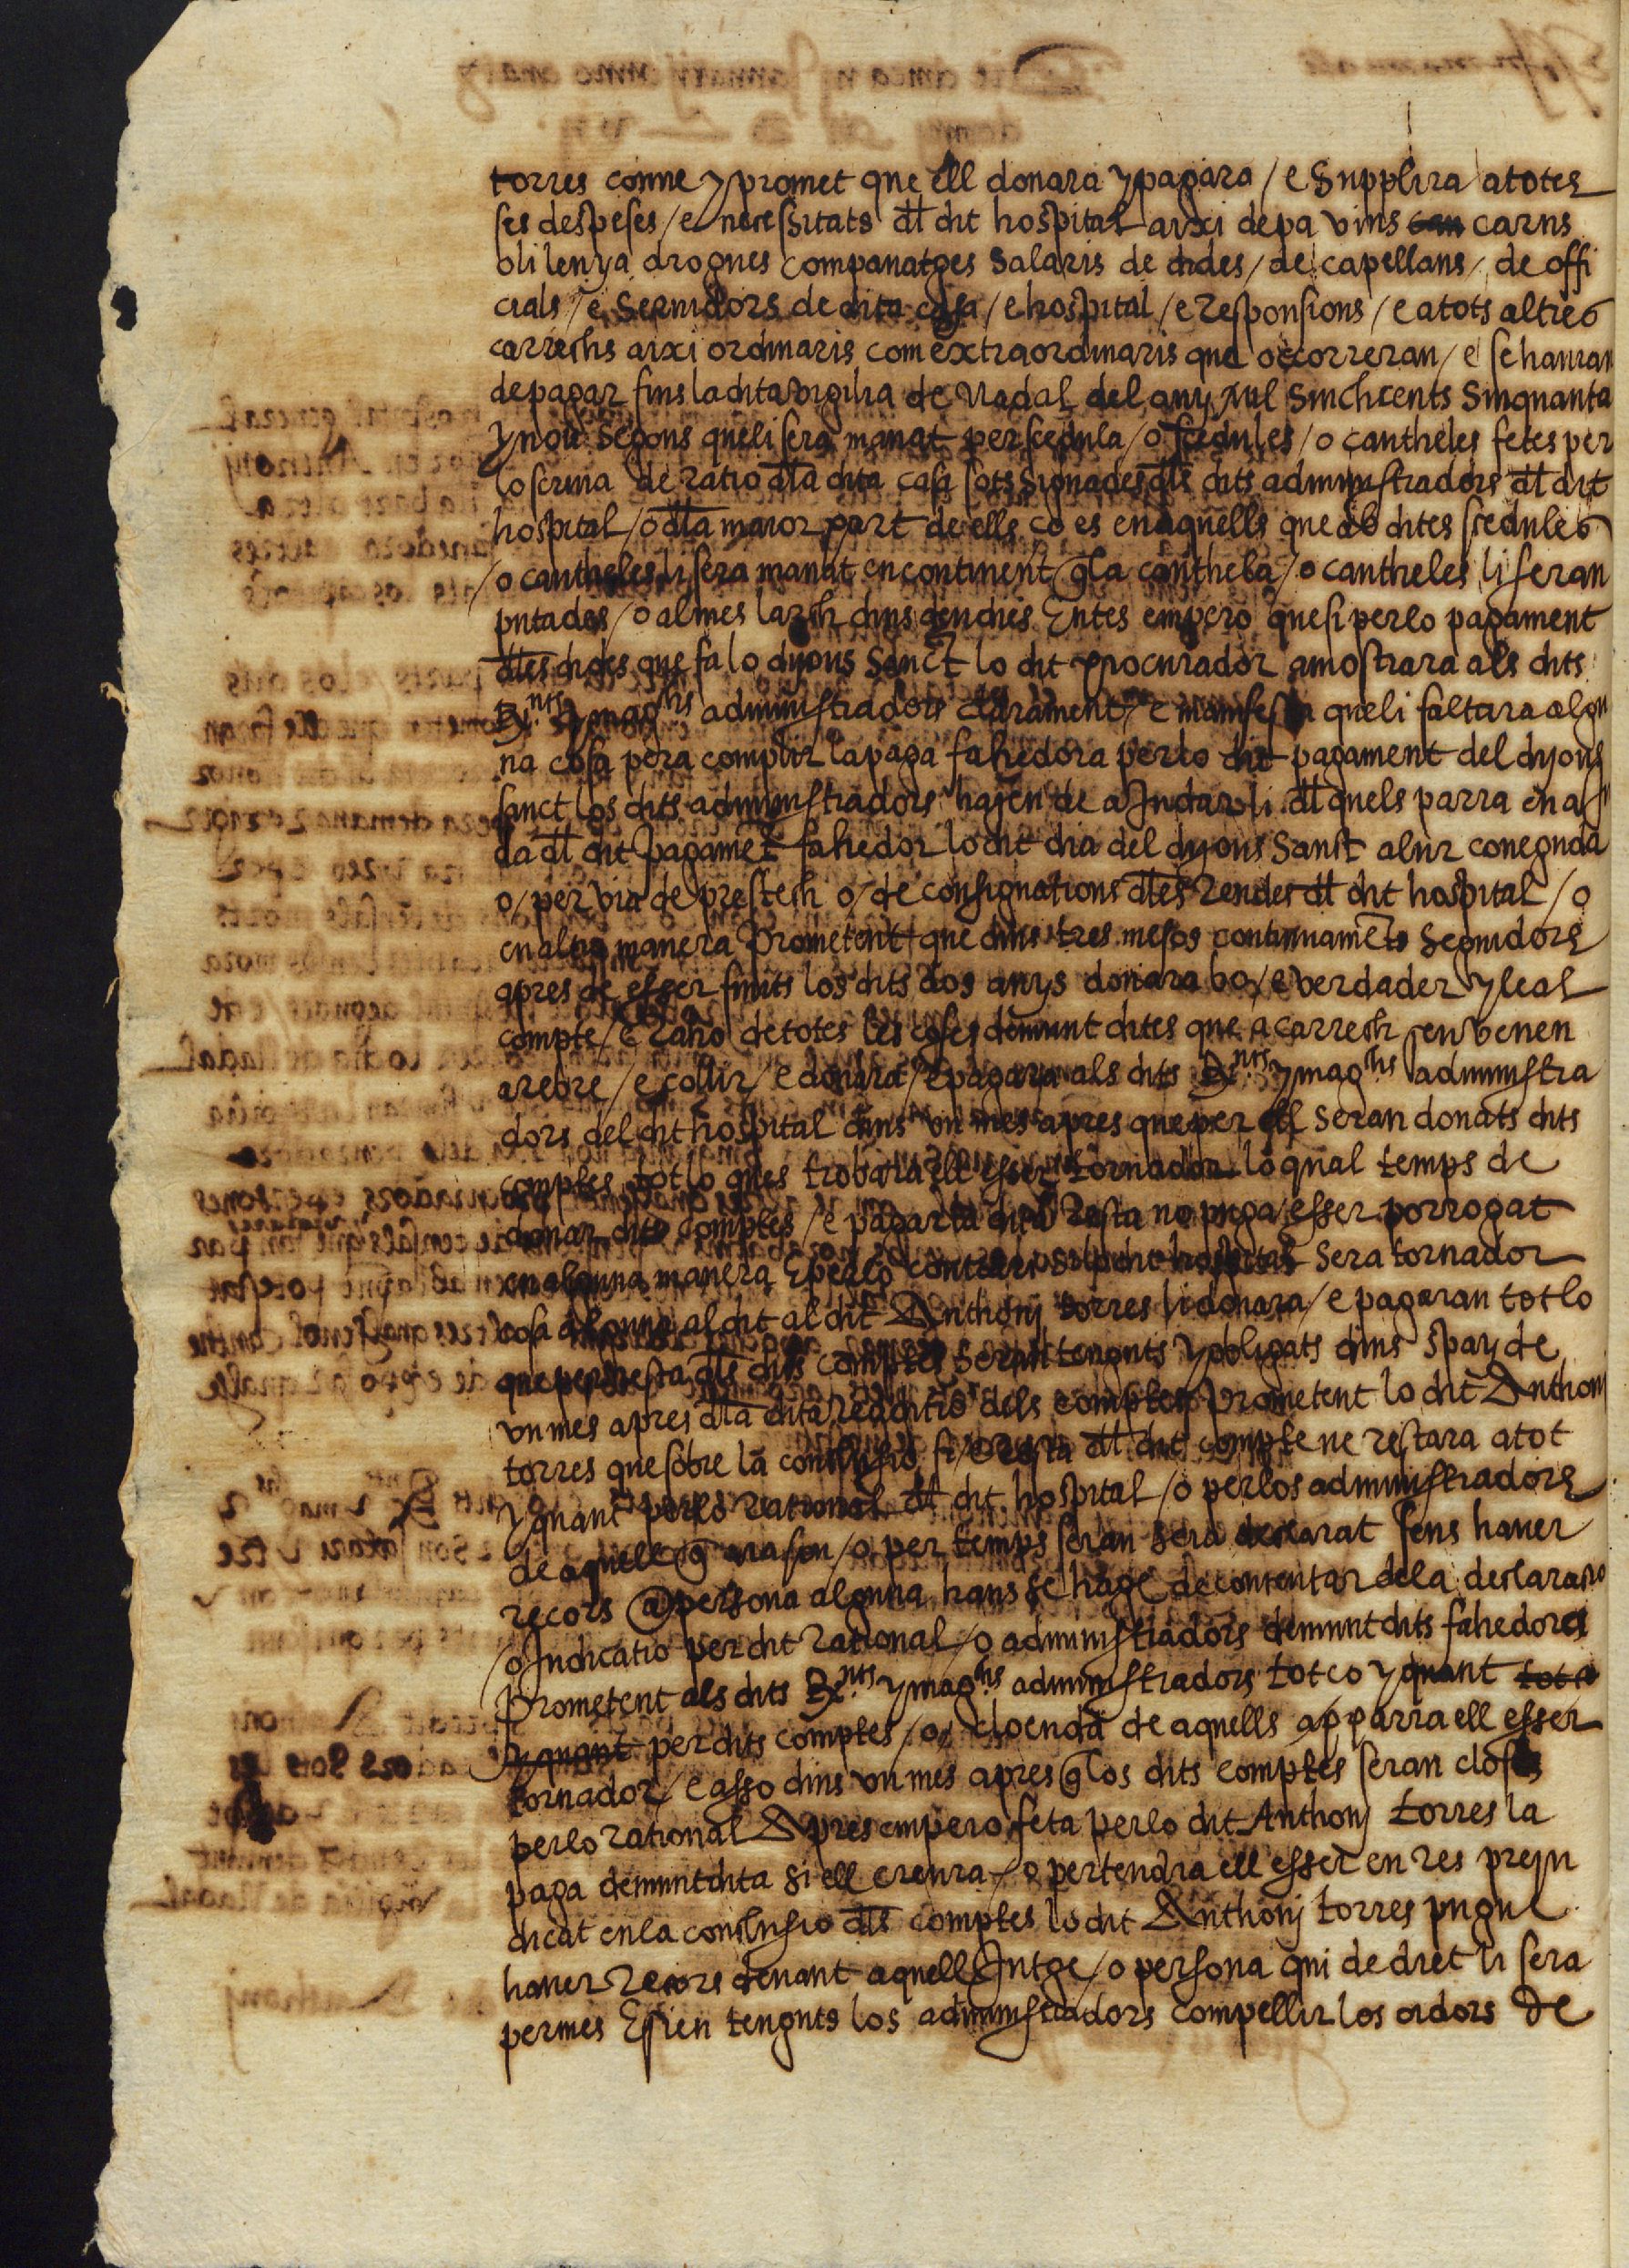 torres conue y promet que ell donara y pagara / e supplira a totes
ses despeses / e necessitats dl dit hospital axi de pa vins can carns
oli lenya drogues companatges salaris de dides / de capellans / de offi
cials / e seruidors de dita casa / e hospital / e responsions / e a tots altres
carrechs aixi ordinaris com extraordinaris que occorreran / e se hauran
de pagar fins la dita vigilia de Nadal del any Mil sinchcents sinquanta
y nou segons que li sera manat per scedula / o scedules / o cautheles fetes per
lo scriua de ratio dla dita casa sots signades dls dits administradors dl dit
hospital / o dla maior part de ells ço es en aquells que ab dites scedules
/ o cautheles li sera manat encontinent q la cauthela / o cautheles li seran
pntades / o al mes larch dins deu dies Entes empero que si per lo pagament
dles dides que fa lo dijous sanct lo dit procurador amostrara als dits
Rnts y maghs administradors clarament / e manifesta que li faltara algu
na cosa pera complir la paga fahedora per lo dit pagament del dijous
sanct los dits administradors hajen de aJudar li dl quels parra en aJu
da dl dit pagamēt fahedor lo dit dia del dijous sanct a lur coneguda
o / per via de prestech o / de consignations dles rendes dl dit hospital / o
en altra manera Prometent que dins tres mesos continuamēts seguidors
apres de esser finits los dits dos anys donara bo / e verdader y leal
compte / e raho de totes les coses demunt dites que a carrech seu venen
a rebre / e collir / e donara / e pagara als dits Rnts y maghs administra
dors del dit hospital dins vn mes apres que per ell seran donats dits
comptes tot lo ques trobara ell esser tornador lo qual temps de
donar dits comptes / e pagar la dita resta no puga esser porrogat
en alguna manera E per lo contrari si lo dit hospital sera tornador
cosa alguna al dit al dit Anthonj torres li donara / e pagaran tot lo
que per resta dls dits comptes seran tenguts y obligats dins spay de
vn mes apres dla dita redditio dels comptes Prometent lo dit Anthonj
torres que sobre la conclusio fi / e resta dl dit compte ne restara a tot
y quant per lo rational dl dit hospital / o per los administradors
de aquell q ara son / o per temps seran sera declarat sens hauer
recors a persona alguna hans se hage de contentar de la declaratio
/ o Judicatio per dit rational / o administradors demunt dits fahedores
Prometent als dits Rnts y maghs administradors tot ço y quant tot ço
y quant per dits comptes / o / cloenda de aquells apparra ell esser
tornador / e asso dins vn mes apres q los dits comptes seran closos
per lo rational Apres empero feta per lo dit Anthonj torres la
paga demunt dita si ell creura / o pertendra ell esser en res preju
dicat en la conclusio dls comptes lo dit Anthonj torres pugue
hauer recors denant aquell Jutge / o persona qui de dret li sera
permes E sien tenguts los administradors compellir los oidors de